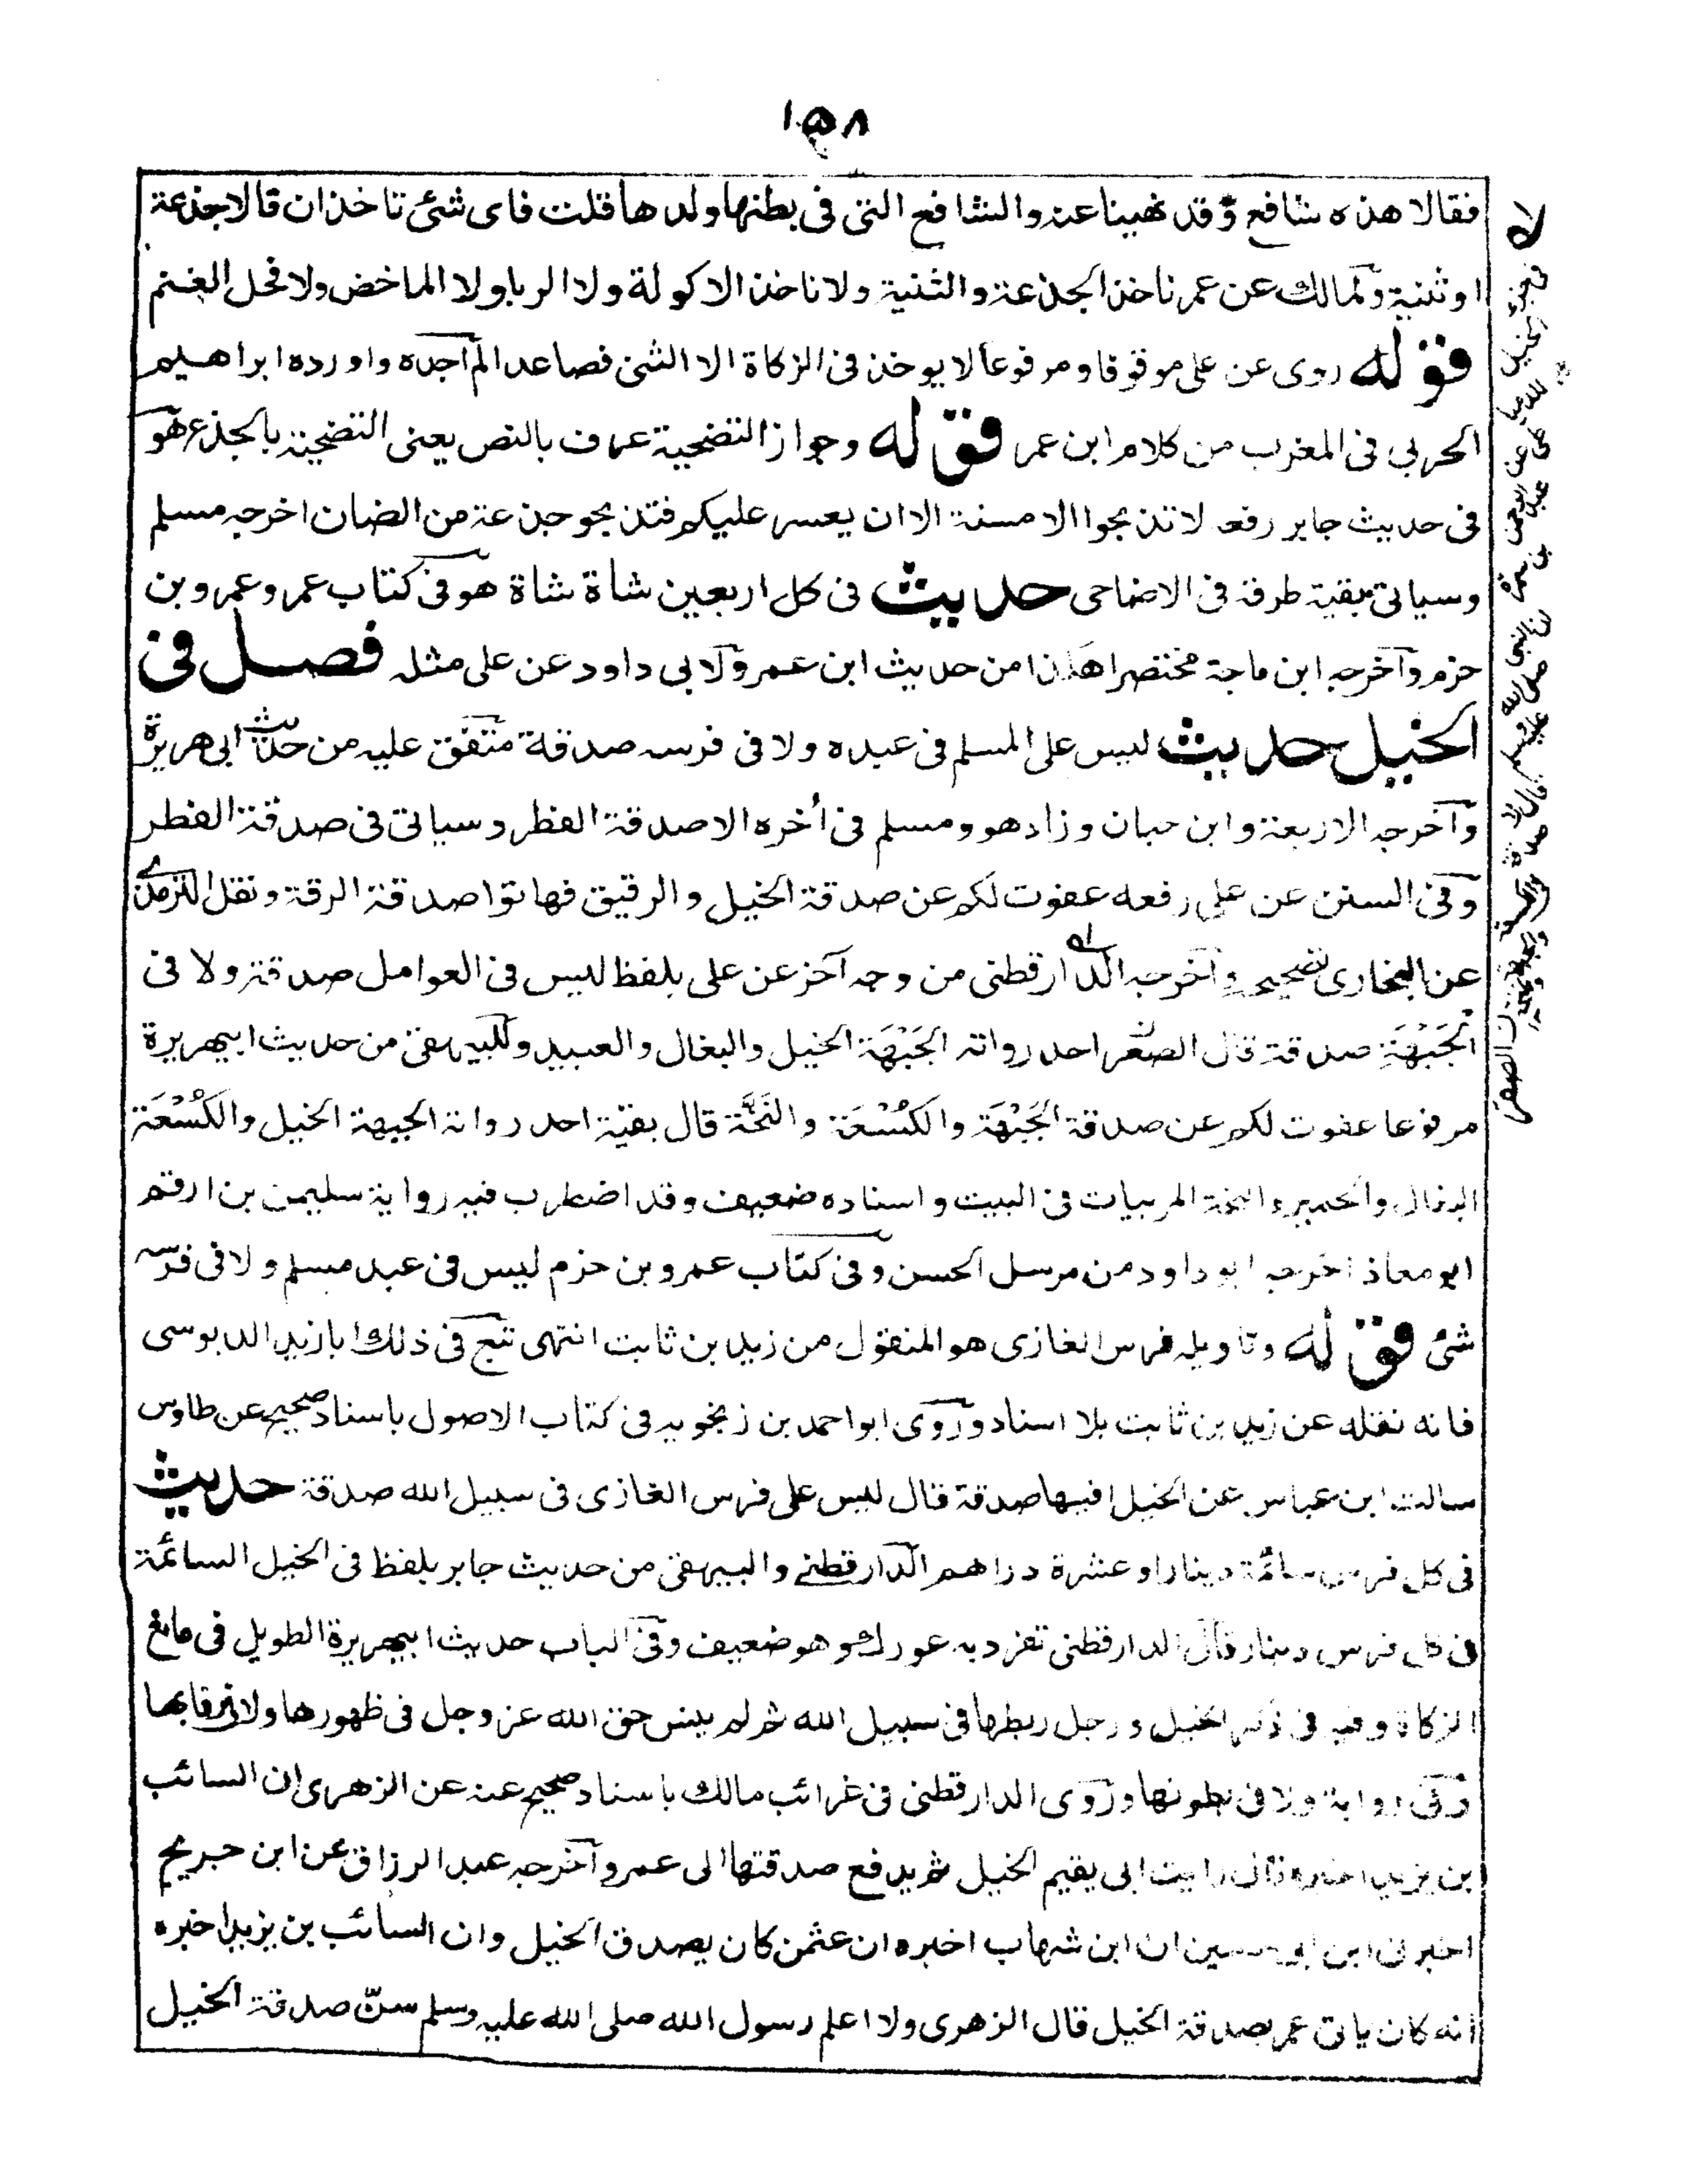 ١٥٨
فقالا هذه شافع وقد نهينا عنه والشافع التى فى بطنها ولدها قلت فاى شئ تاخذان قالا جذعة
او ثنية ولمالك عن عمر ناخذ الجذعة والثنية ولا ناخذ الاكولة ولا الربا ولا الماخض ولا فحل الغنم
قوله روى عن على موقوفا ومرفوعا لا يوخذ فى الزكاة الا الثنى فصاعدا لم اجده واورده ابراهيم
الحربى فى المغرب من كلام ابن عمر قوله وجواز التضحية عرف بالنص يعنى التضحية بالجذع هو
فى حديث جابر رفعه لا تذبحوا الا مسنة الا ان يعسر عليكم فتذبحو جذعة من الضان اخرجه مسلم
وسياتى بقية طرقه فى الاضاحى حديث فى كل اربعين شاة شاة هو فى كتاب عمر وعمرو بن
حزم واخرجه ابن ماجة مختصرا هكذا من حديث ابن عمر ولابى داود عن على مثله فصل فى
الخيل حديث ليس على المسلم فى عبده ولا فى فرسه صدقة متفق عليه من حديث ابى هريرة
واخرجه الاربعة وابن حبان وزاد هو ومسلم فى اخره الا صدقة الفطر وسياتى فى صدقة الفطر
وفى السنن عن على رفعه عفوت لكم عن صدقة الخيل والرقيق فهاتوا صدقة الرقة ونقل الترمذى
عن البخارى تصحيحه واخرجه الدارقطنى من وجه آخر عن على بلفظ ليس فى العوامل صدقة ولا فى
الجَبْهَةِ صدقة قال الصقر احد رواته الجَبْهَة الخيل والبغال والعبيد وللبيهقى من حديث ابيهريرة
مرفوعا عفوت لكم عن صدقة الجَبْهَة والكُسْعَة والنَخَّة قال بقية احد رواته الجبهة الخيل والكُسْعَة
البغال والحمير والنخة المربيات فى البيت واسناده ضعيف وقد اضطرب فيه رواية سليمن بن ارقم
ابو معاذ اخرجه ابو داود من مرسل الحسن وفى كتاب عمرو بن حزم ليس فى عبد مسلم ولا فى فرسه
شئ قوله وتاويله فرس الغازى هو المنقول من زيد بن ثابت انتهى تبع فى ذلك ابا زيد الدبوسى
فانه نقله عن زيد بن ثابت بلا اسناد وروى ابو احمد بن زنجويه فى كتاب الاصول باسناد صحيح عن طاوس
سالت ابن عباس عن الخيل افيها صدقة قال ليس على فرس الغازى فى سبيل الله صدقة حديث
فى كل فرس سائمة دينارا وعشرة دراهم الدارقطنى والبيهقى من حديث جابر بلفظ فى الخيل السائمة
فى كل فرس دينار قال الدارقطنى تفرد به عورك وهو ضعيف وفى الباب حديث ابيهريرة الطويل فى مانع
الزكاة وفيه فى ذكر الخيل ورجل ربطها فى سبيل الله ثم لم ينس حق الله عز وجل فى ظهورها ولا فى رقابها
وفى رواية ولا فى بطونها وروى الدارقطنى فى غرائب مالك باسناد صحيح عنه عن الزهرى ان السائب
بن يزيد اخبره قال رايت ابى يقيم الخيل ثم يدفع صدقتها الى عمر واخرجه عبد الرزاق عن ابن جريج
اخبرنى ابن ابى حسين ان ابن شهاب اخبره ان عثمن كان يصدق الخيل وان السائب بن يزيد اخبره
انه كان ياتى عمر بصدقة الخيل قال الزهرى ولا اعلم رسول الله صلى الله عليه وسلم سنّ صدقة الخيل
عن عبد الرحمن بن سمرة ان النبى صلى الله عليه وسلم قال لا صدقة فى الكسعة والجبهة والنخة